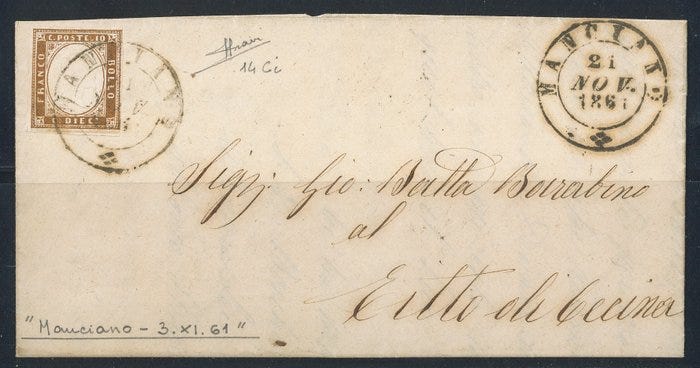 C. POSTE 10
FRANCO
BOLLO
C. DIECI
MANCIANO
14 Ci
MANCIANO
21
NOV.
1861
Sigr: Gio: Batta Borrabino
al
Fitto di Cecina
"Manciano - 3. XI. 61"